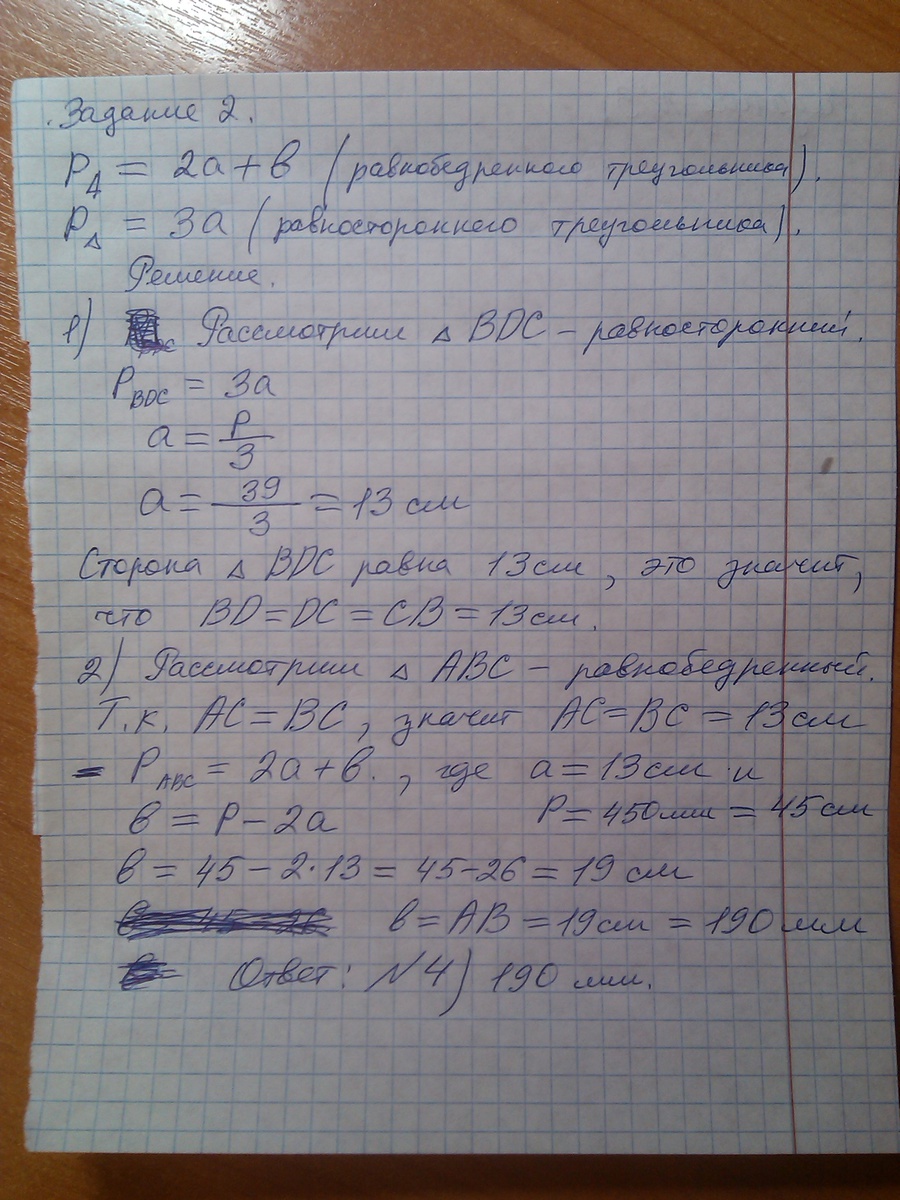 Задание 2.
P△ = 2a + в (равнобедренного треугольника).
P△ = 3a (равностороннего треугольника).
Решение.
1) Рассмотрим △ BDC – равносторонний.
P_BDC = 3a
a = P/3
a = 39/3 = 13 см
Сторона △ BDC равна 13 см, это значит,
что BD = DC = CB = 13 см.
2) Рассмотрим △ ABC – равнобедренный.
Т.к. AC = BC, значит AC = BC = 13 см
P_ABC = 2a + в., где a = 13 см и
в = P – 2a P = 450 мм = 45 см
в = 45 – 2·13 = 45 – 26 = 19 см
в = AB = 19 см = 190 мм
Ответ: N4) 190 мм.